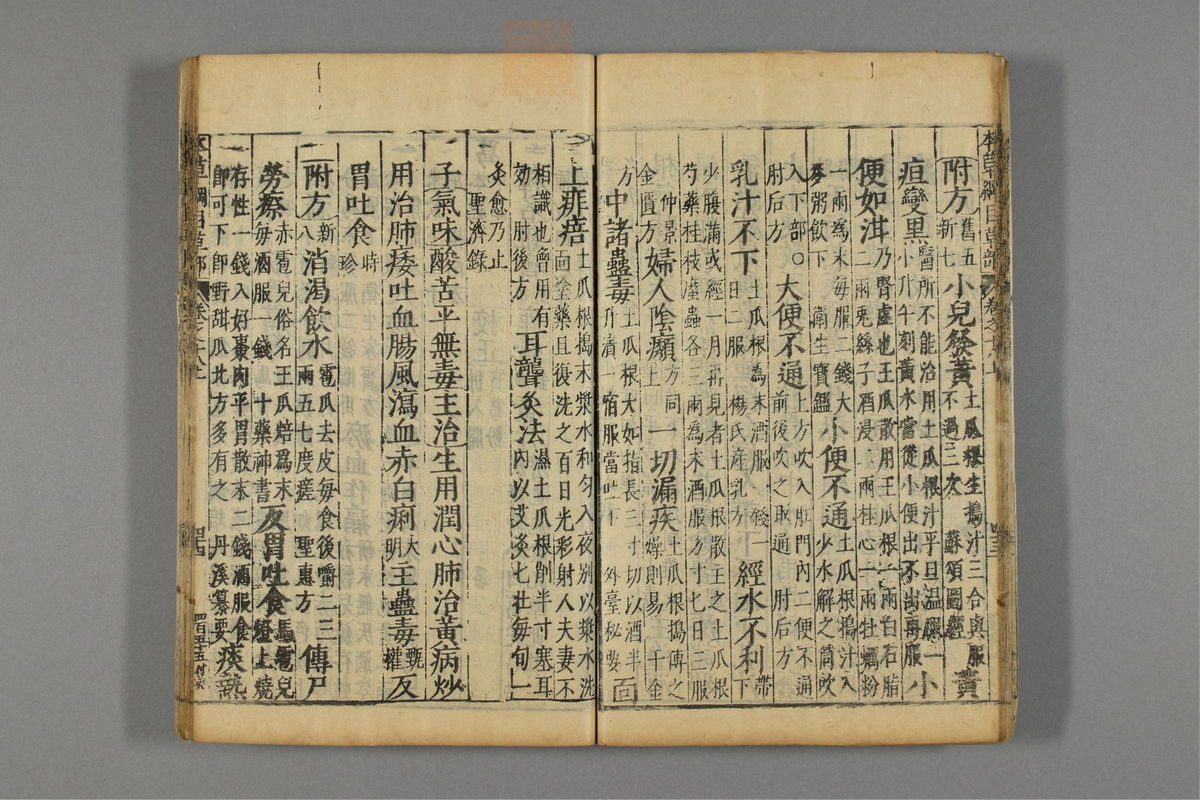 附方舊五新七小兒發黃土瓜根生搗汁三合與服不過三次蘇頌圖經黃
疸變黑醫所不能治用土瓜根汁平旦溫服一小升午刻黃水當從小便出不出再服小
便如泔乃腎虛也王瓜散用王瓜根一兩白石脂二兩兎絲子酒浸二兩桂心一兩牡蠣粉
一兩爲末每服二錢大麥粥飲下衛生寶鑑小便不通土瓜根搗汁入少水解之筒吹
入下部○大便不通上方吹入肛門內二便不通前後吹之取通肘后方
肘后方
乳汁不下土瓜根爲末酒服一錢一日二服楊氏產乳方經水不利帶下
少腹滿或經一月再見者土瓜根散主之土瓜根芍藥桂枝䗪蟲各三兩爲末酒服方寸七日三服
仲景金匱方婦人陰㿗方同上一切漏疾土瓜根搗傅之燥則易千金
方中諸蠱毒土瓜根大如指長三寸切以酒半升漬一宿服當吐下外臺秘要面
上痱㾦土瓜根搗末漿水和勻入夜別以漿水洗面塗藥且復洗之百日光彩射人夫妻不
相識也曾用有効肘後方耳聾灸法濕土瓜根削半寸塞耳內以艾灸七壯每旬一
灸愈乃止聖濟錄
子氣味酸苦平無毒主治生用潤心肺治黃病炒
用治肺痿吐血腸風瀉血赤白痢大明主蠱毒甄權反
胃吐食時珍
附方新八消渴飲水雹瓜去皮每食後嚼二三兩五七度瘥聖惠方傳尸
勞瘵赤雹兒俗名王瓜焙爲末每酒服一錢十藥神書反胃吐食馬雹兒燈上燒
存性一錢入好棗肉平胃散末二錢酒服食即可下即野甜瓜北方多有之丹溪纂要痰熱
本草綱目草部
卷之十八上
四三
本草綱目草部
卷之十八上
四四